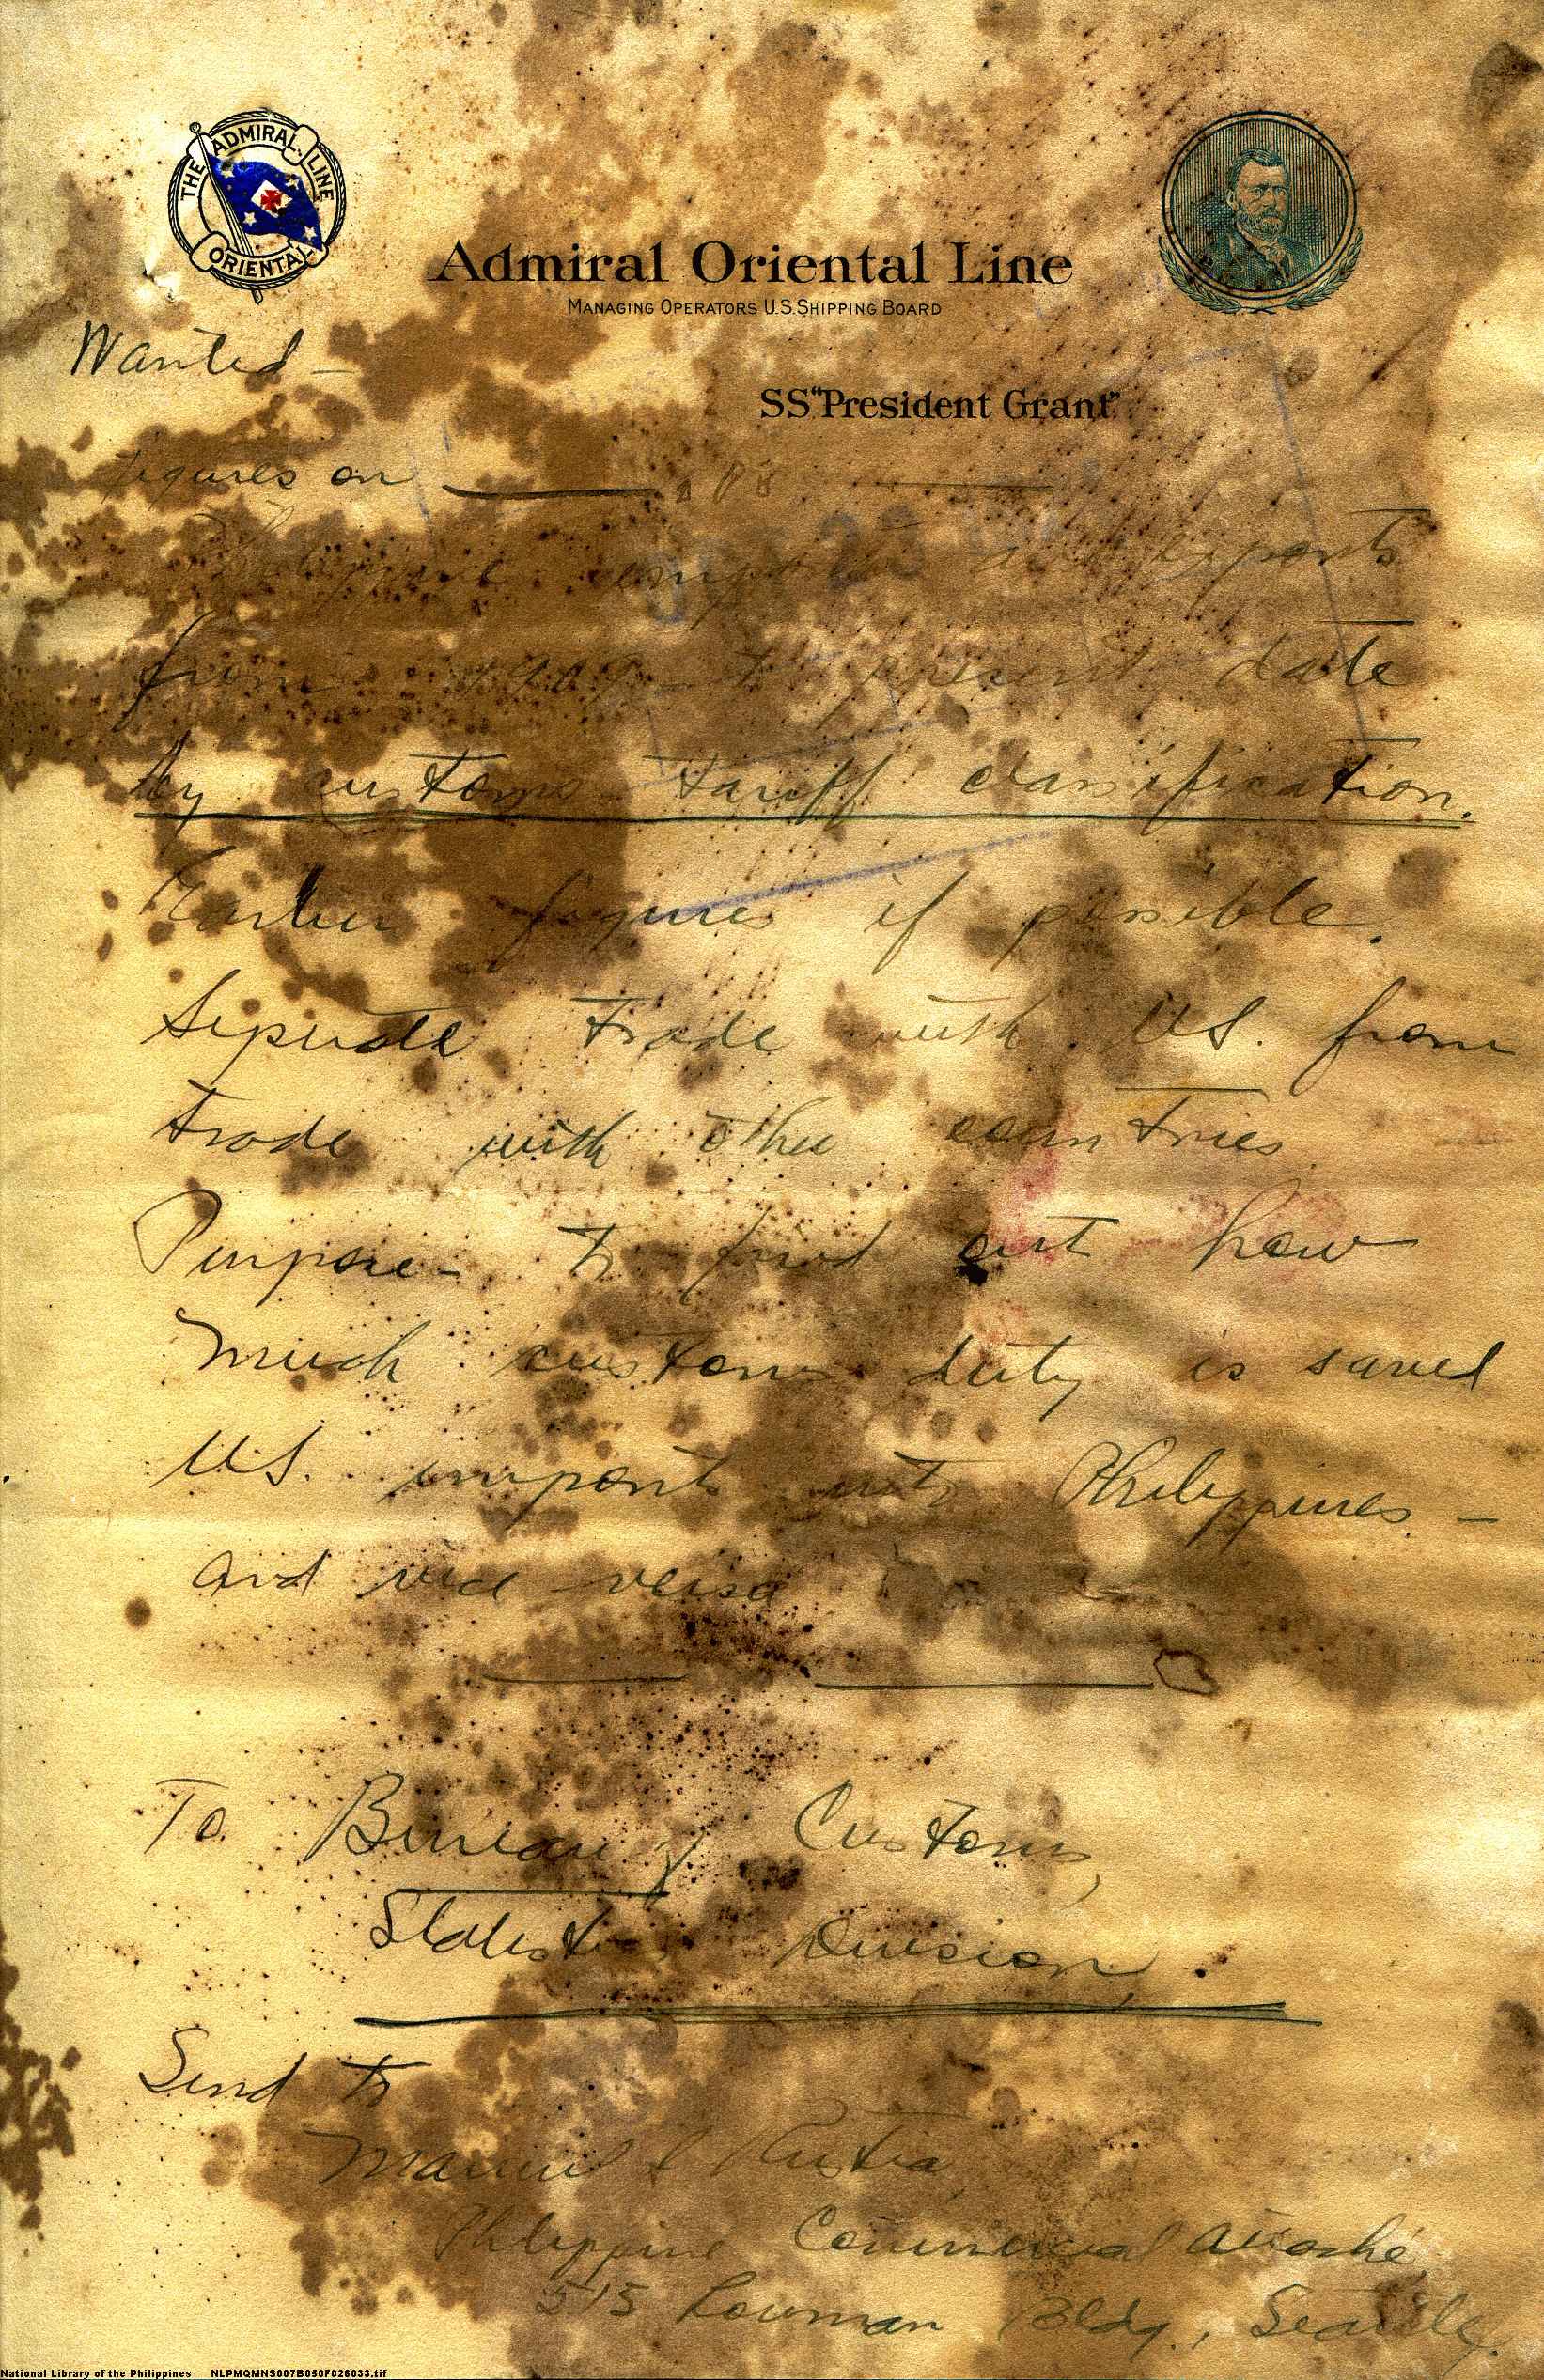 THE ADMIRAL LINE
ORIENTAL
Admiral Oriental Line
MANAGING OPERATORS U.S. SHIPPING BOARD
Wanted –
SS "President Grant"
figures on
Philippine imports and exports
from 1909 to present date
by customs tariff classification.
Earlier figures if possible.
Seperate trade with US. from
trade with other countries
Purpose – to find out how
much customs duty is saved
U.S. imports into Philippines –
and vice versa
To Bureau of Customs,
Statistics Division.
Send to
Manuel Rustia,
Philippine Commercial Attaché
515 Lowman Bldg., Seattle.
National Library of the Philippines NLPMQMNS007B050F026033.tif